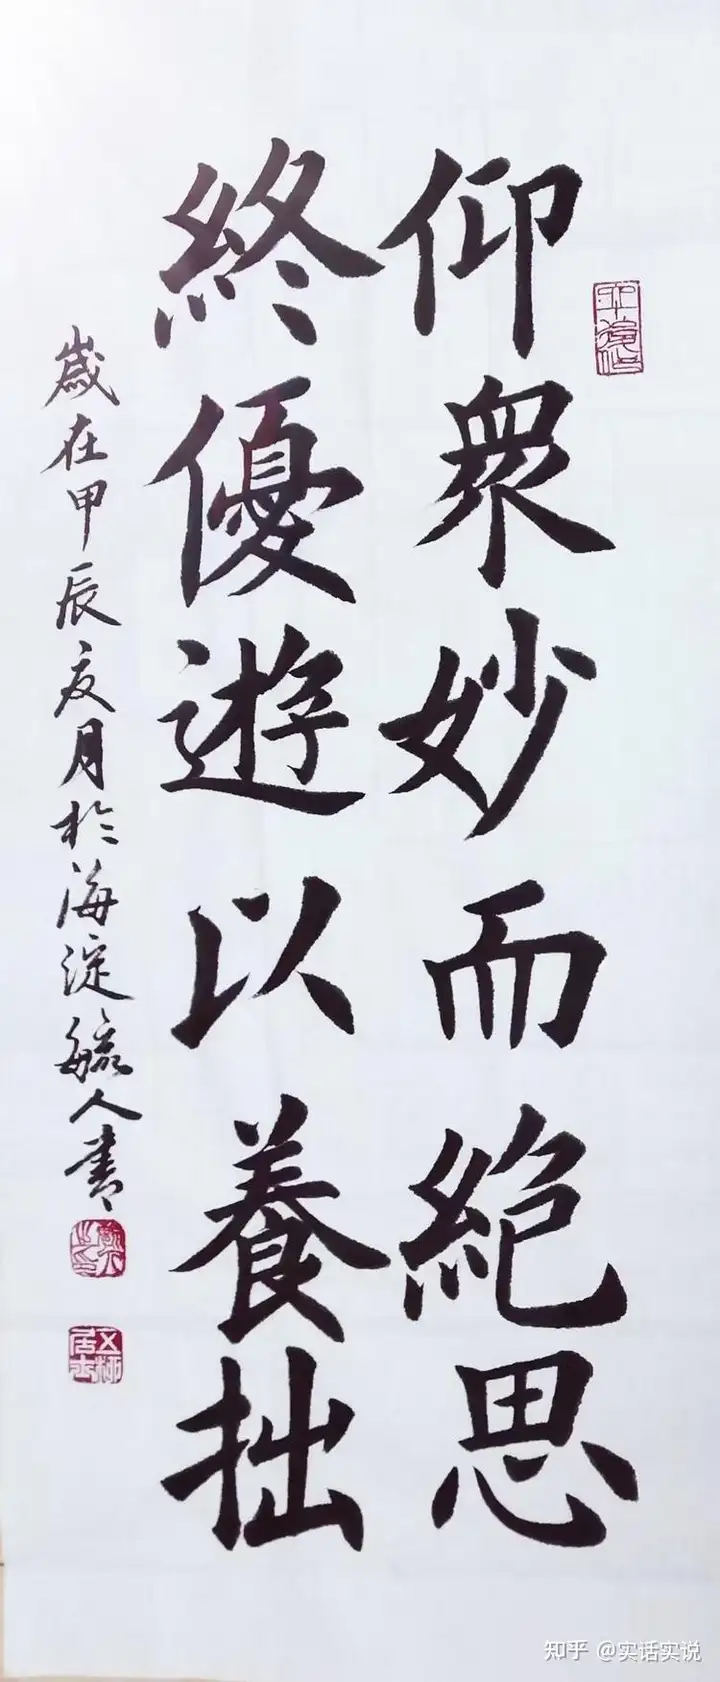 仰衆妙而絶思
終優遊以養拙
歲在甲辰亥月於海淀毓人書
五柳居士
知乎 @实话实说